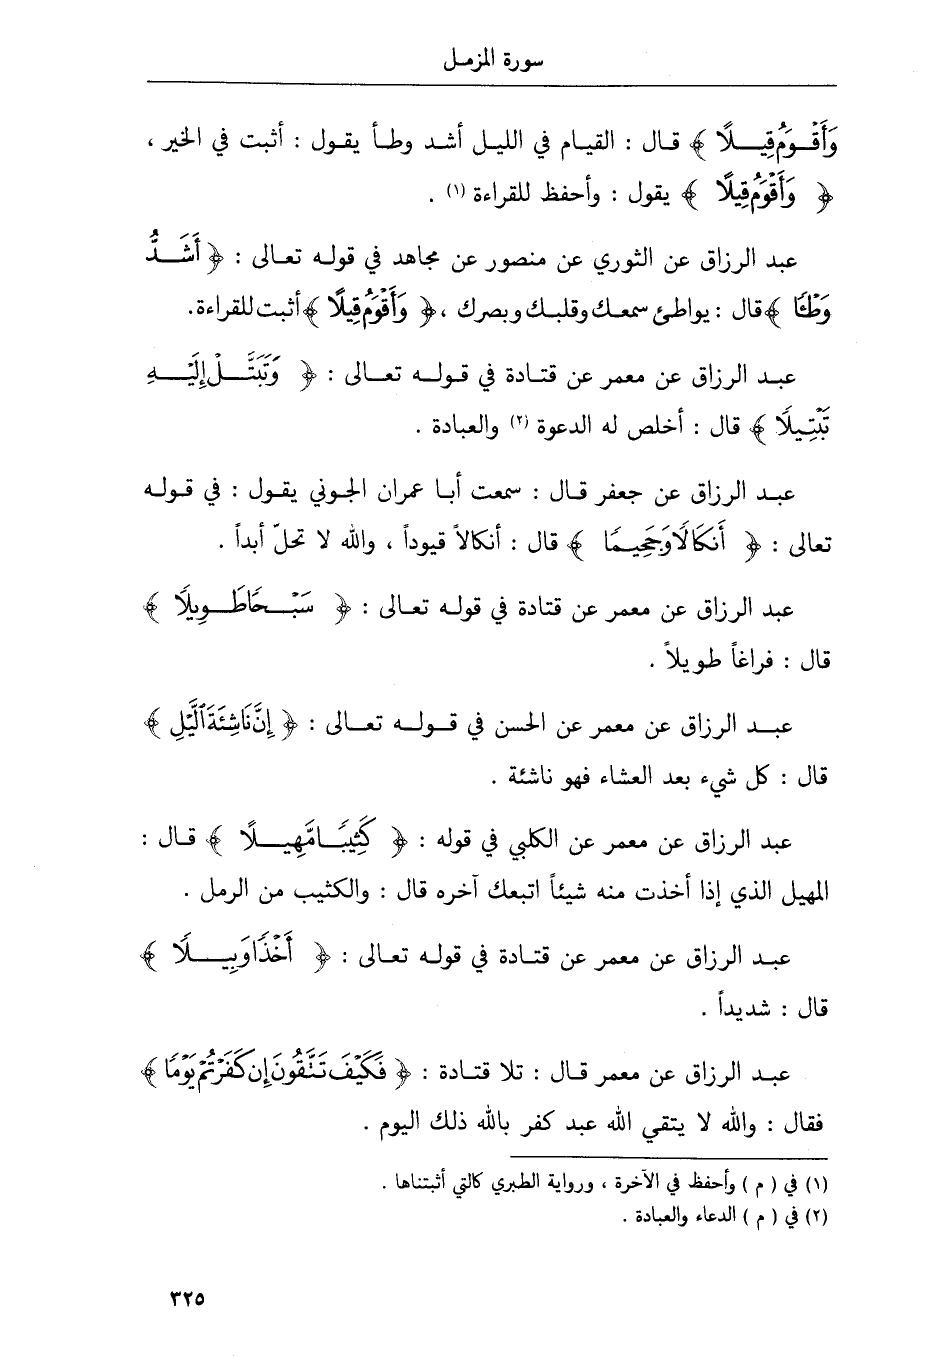 سورة المزمل
وَأَقْوَمُ قِيلًا ﴾ قال : القيام في الليل أشد وطأ يقول : أثبت في الخير ،
﴿ وَأَقْوَمُ قِيلًا ﴾ يقول : وأحفظ للقراءة (١) .
عبد الرزاق عن الثوري عن منصور عن مجاهد في قوله تعالى : ﴿ أَشَدُّ
وَطْئًا ﴾ قال : يواطئ سمعك وقلبك وبصرك ، ﴿ وَأَقْوَمُ قِيلًا ﴾ أثبت للقراءة .
عبد الرزاق عن معمر عن قتادة في قوله تعالى : ﴿ وَتَبَتَّلْ إِلَيْهِ
تَبْتِيلًا ﴾ قال : أخلص له الدعوة (٢) والعبادة .
عبد الرزاق عن جعفر قال : سمعت أبا عمران الجوني يقول : في قوله
تعالى : ﴿ أَنكَالًا وَجَحِيمًا ﴾ قال : أنكالاً قيوداً ، والله لا تحلّ أبداً .
عبد الرزاق عن معمر عن قتادة في قوله تعالى : ﴿ سَبْحًا طَوِيلًا ﴾
قال : فراغاً طويلاً .
عبد الرزاق عن معمر عن الحسن في قوله تعالى : ﴿ إِنَّ نَاشِئَةَ ٱلَّيْلِ ﴾
قال : كل شيء بعد العشاء فهو ناشئة .
عبد الرزاق عن معمر عن الكلبي في قوله : ﴿ كَثِيبًا مَّهِيلًا ﴾ قال :
المهيل الذي إذا أخذت منه شيئاً اتبعك آخره قال : والكثيب من الرمل .
عبد الرزاق عن معمر عن قتادة في قوله تعالى : ﴿ أَخْذًا وَبِيلًا ﴾
قال : شديداً .
عبد الرزاق عن معمر قال : تلا قتادة : ﴿ فَكَيْفَ تَتَّقُونَ إِن كَفَرْتُمْ يَوْمًا ﴾
فقال : والله لا يتقي الله عبد كفر بالله ذلك اليوم .
(١) في ( م ) وأحفظ في الآخرة ، ورواية الطبري كالتي أثبتناها .
(٢) في ( م ) الدعاء والعبادة .
٣٢٥